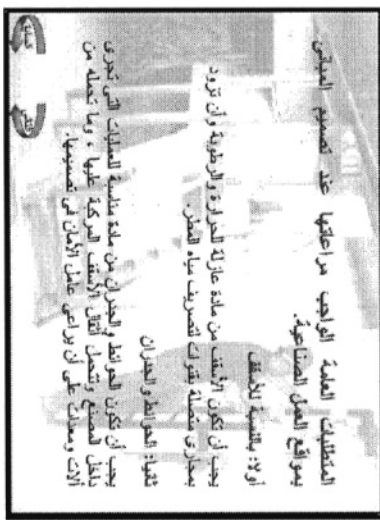 المتطلبات العامة الواجب مراعاتها عند تصميم المباني
بمواقع العمل الصناعية.
أولا: بالنسبة للأسقف
يجب أن تكون الأسقف من مادة عازلة للحرارة والرطوبة وأن تزود
بمجاري متصلة بقنوات لتصريف مياه المطر.
ثانيا: الحوائط والجدران
يجب أن تكون الحوائط والجدران من مادة مناسبة للعمليات التى تجرى
داخل المصنع وتتحمل أثقال الأسقف المركبة عليها ، وما تحمله من
آلات ومعدات على أن يراعى عامل الأمان فى تصميمها.